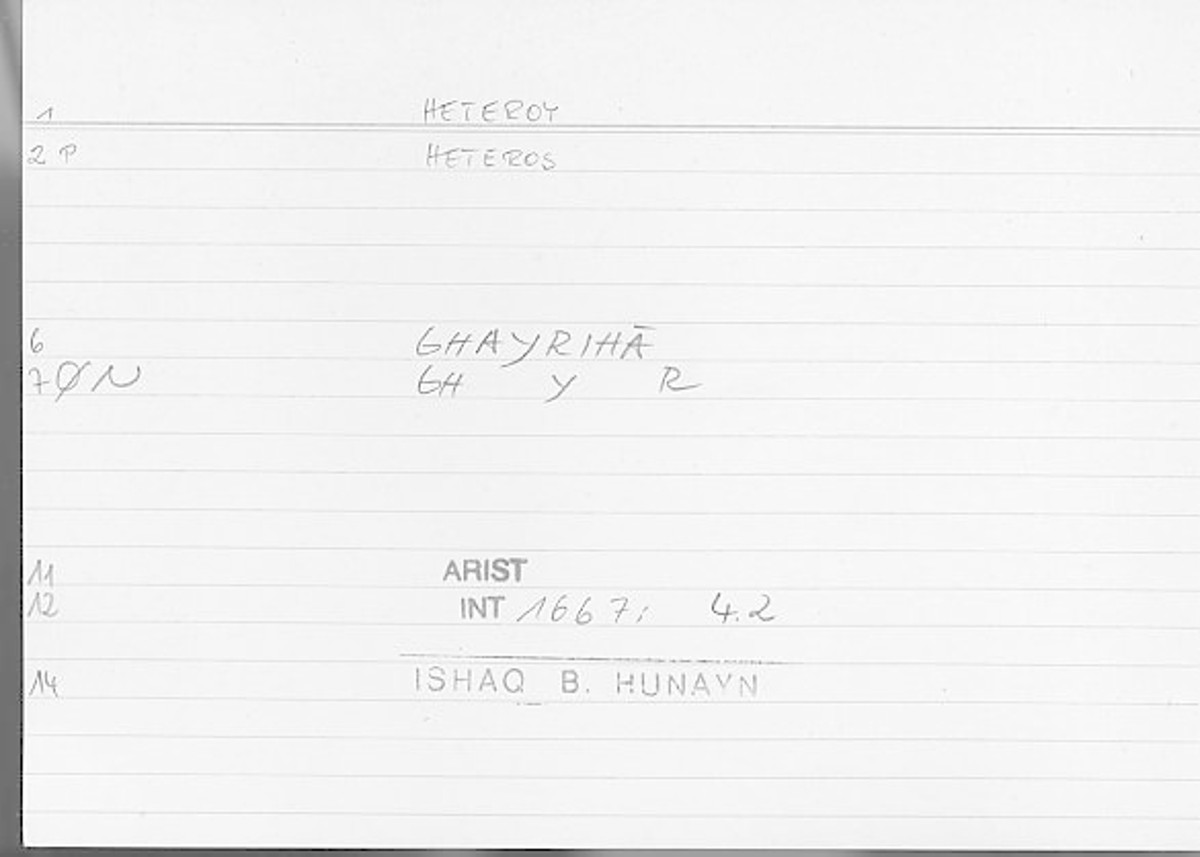 1 HETEROY
2 P HETEROS
6 GHAYRIHĀ
7 ØN GH Y R
11 ARIST
12 INT 1667; 4.2
14 ISHAQ B. HUNAYN